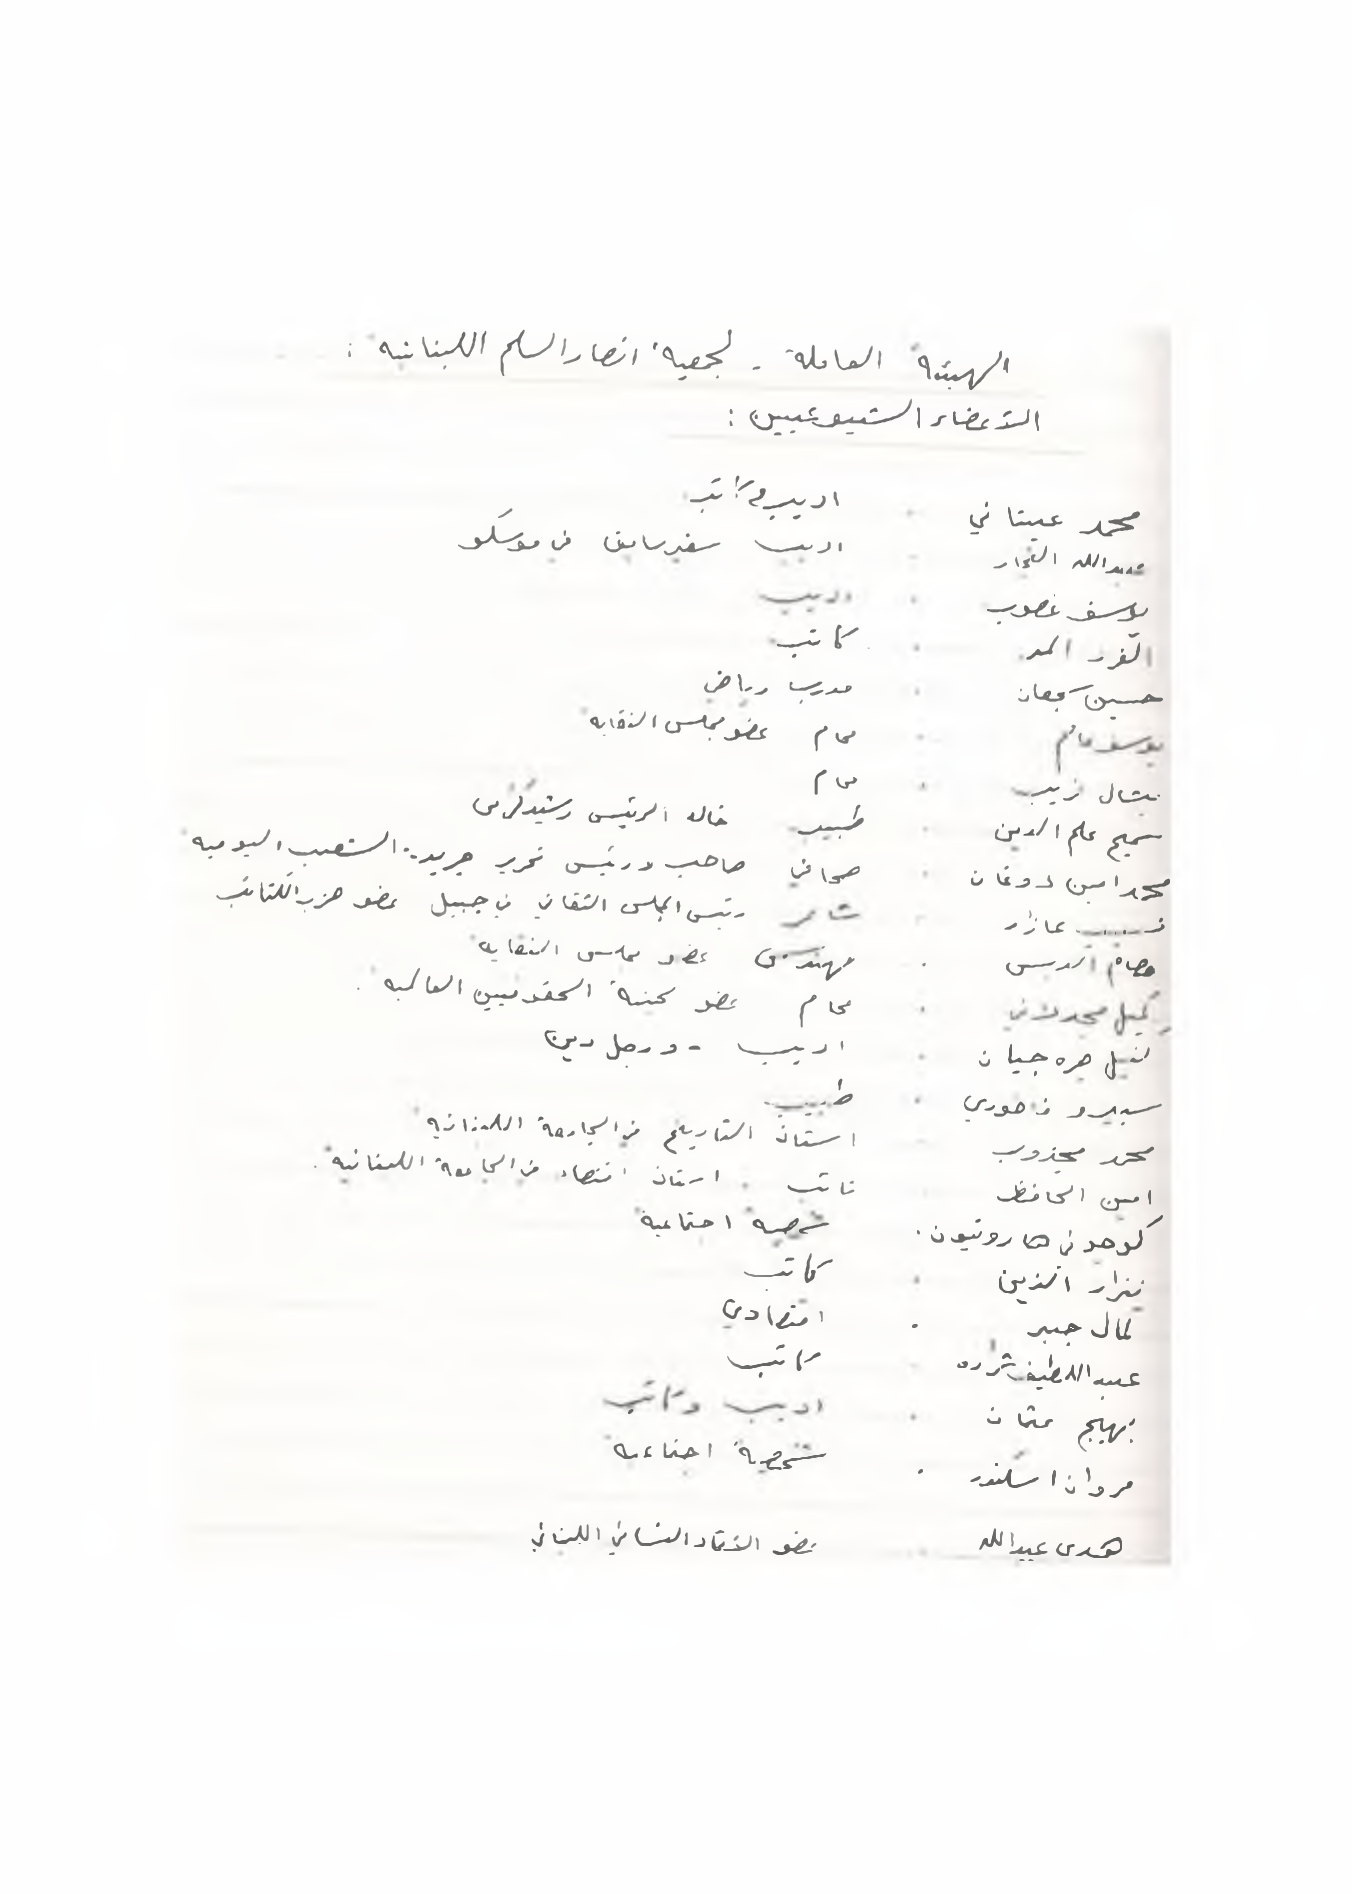 الهيئة العاملة - لجمعية انصار السلم اللبنانية :
الاعضاء الشيوعيين :
محمد عيتاني . اديب وكاتب
عبدالله النجار . اديب سفير سابق في موسكو
يوسف غصوب . اديب
الفرد المر . كاتب
حسين سجعان . مدرب رياضي
يوسف . محام عضو مجلس النقابة
ميشال زبيب . محام
سميح علم الدين . طبيب خاله الرئيس رشيد كرامي
محمد امين دوغان . صحافي صاحب ورئيس تحرير جريدة الشعب اليومية
عازار . شاعر رئيس المجلس الثقافي في جبيل عضو حزب الكتائب
الدبس . مهندس عضو مجلس النقابة
كميل مجدلاني . محام عضو لجنة الحقوقيين العالمية .
. اديب - ورجل دين
سبيرو فاخوري . طبيب
محمد مجذوب استاذ التاريخ في الجامعة اللبنانية
امين الحافظ نائب . استاذ اقتصاد في الجامعة اللبنانية .
هاروتيون . شخصية اجتماعية
نزار الزين . كاتب
كمال جبر . اقتصادي
عبد اللطيف شراره . كاتب
بهيج عثمان . اديب وكاتب
مروان اسكندر . شخصية اجتماعية
هدى عبدالله . عضو الاتحاد النسائي اللبناني